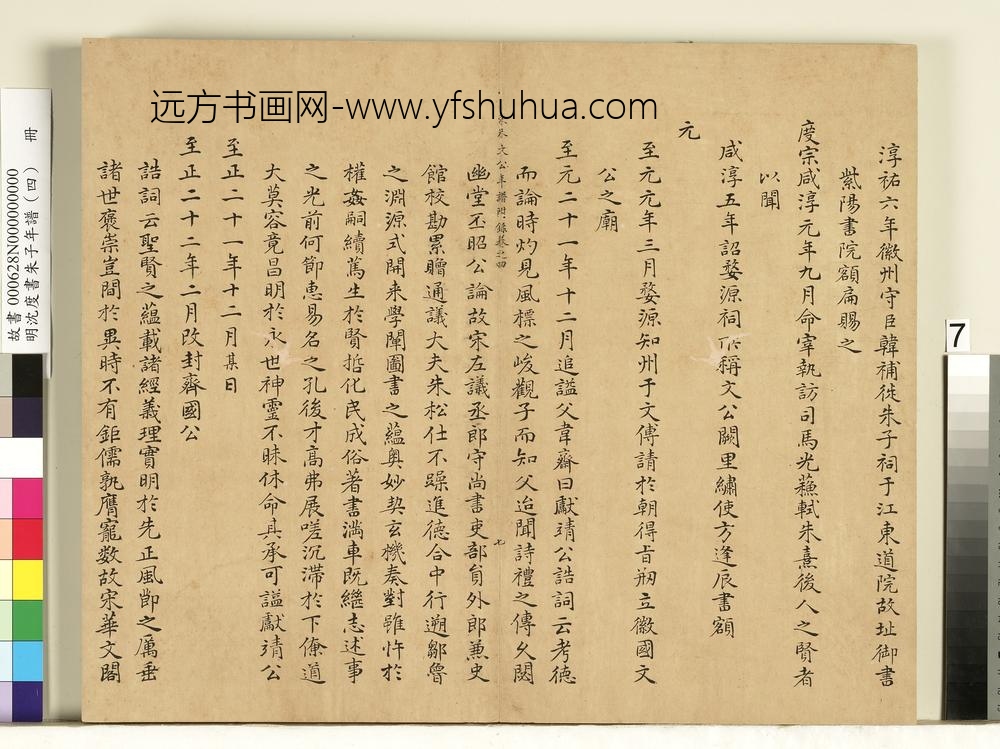 远方书画网-www.yfshuhua.com
淳祐六年徽州守臣韓補徙朱子祠于江東道院故址御書
紫陽書院額扁賜之
度宗咸淳元年九月命宰執訪司馬光蘓軾朱熹後人之賢者
以聞
咸淳五年詔婺源祠所稱文公闕里繡使方逢辰書額
元
至元元年三月婺源知州于文傅請於朝得旨刱立徽國文
公之廟
至元二十一年十二月追謚父韋齋曰獻靖公誥詞云考德
而論時灼見風標之峻觀子而知父迨聞詩禮之傳久閟
幽堂丕昭公論故宋左議丞郎守尚書吏部貟外郎兼史
宋朱文公年譜附錄卷之四
七
館校勘累贈通議大夫朱松仕不躁進德合中行遡鄒魯
之淵源式開来學闡圖書之蘊奥妙契玄機奏對雖忤於
權姦嗣續篤生於賢哲化民成俗著書滿車既繼志述事
之光前何節惠易名之孔後才高弗展嗟沉滯於下僚道
大莫容竟昌明於永世神靈不昧休命其承可謚獻靖公
至正二十一年十二月某日
至正二十二年二月改封齊國公
誥詞云聖賢之藴載諸經義理實明於先正風莭之厲垂
諸世褒崇豈間於異時不有鉅儒孰膺寵数故宋華文閣
故書 000628N000000000 冊
明沈度書朱子年譜(四)
7